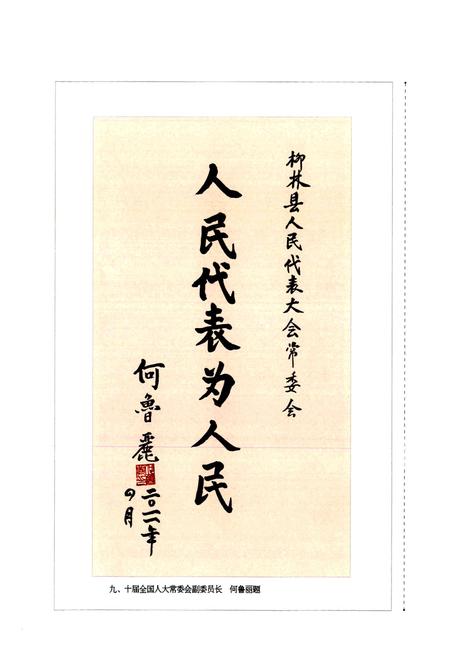 柳林县人民代表大会常委会
人民代表为人民
何鲁麗
二〇一一年
四月
九、十届全国人大常委会副委员长　何鲁丽题